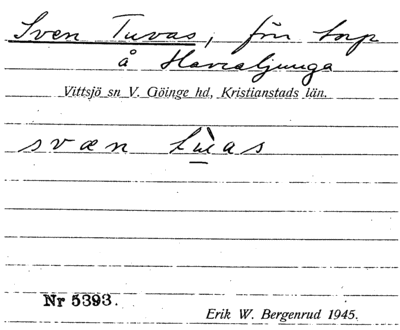 Sven Tuvas, förr torp
å Havraljunga
Vittsjö sn V. Göinge hd, Kristianstads län.
svæn
Nr 5393.
Erik W. Bergenrud 1945.